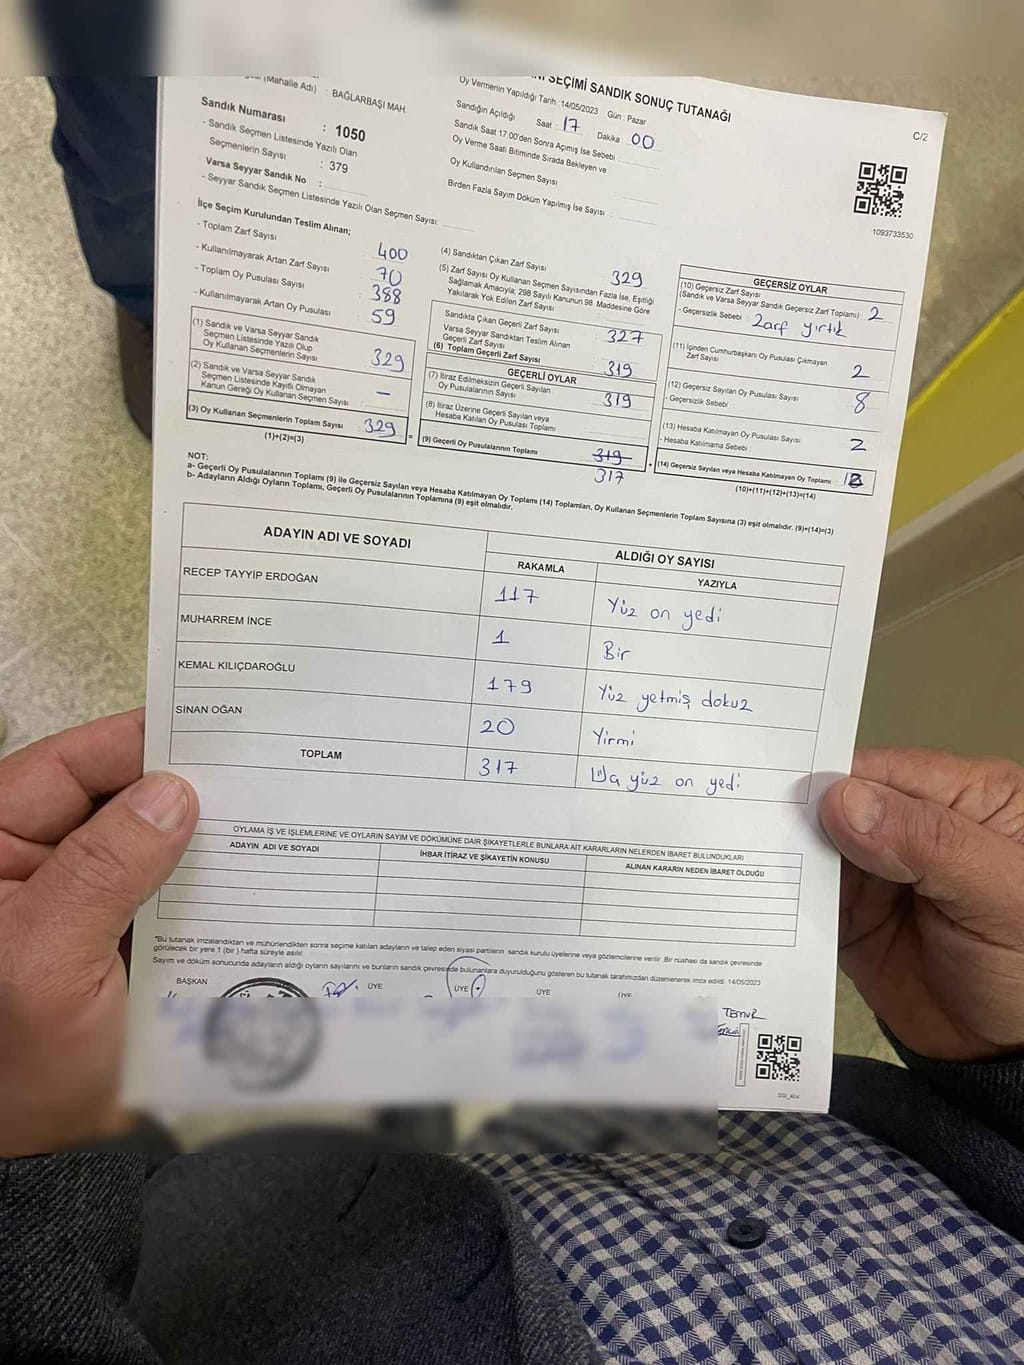 SEÇİMİ SANDIK SONUÇ TUTANAĞI
C/2
(Mahalle Adı) : BAĞLARBAŞI MAH.
Sandık Numarası : 1050
- Sandık Seçmen Listesinde Yazılı Olan
Seçmenlerin Sayısı : 379
Varsa Seyyar Sandık No :
- Seyyar Sandık Seçmen Listesinde Yazılı Olan Seçmen Sayısı:
Oy Vermenin Yapıldığı Tarih : 14/05/2023 Gün : Pazar
Sandığın Açıldığı Saat : 17 Dakika : 00
Sandık Saat 17:00'den Sonra Açımış İse Sebebi :
Oy Verme Saati Bitiminde Sırada Bekleyen ve
Oy Kullandırılan Seçmen Sayısı
Birden Fazla Sayım Döküm Yapılmış İse Sayısı :
1093733530
İlçe Seçim Kurulundan Teslim Alınan;
- Toplam Zarf Sayısı : 400
- Kullanılmayarak Artan Zarf Sayısı : 70
- Toplam Oy Pusulası Sayısı : 388
- Kullanılmayarak Artan Oy Pusulası : 59
(1) Sandık ve Varsa Seyyar Sandık
Seçmen Listesinde Yazılı Olup
Oy Kullanan Seçmenlerin Sayısı : 329
(2) Sandık ve Varsa Seyyar Sandık
Seçmen Listesinde Kayıtlı Olmayan
Kanun Gereği Oy Kullanan Seçmen Sayısı : —
(3) Oy Kullanan Seçmenlerin Toplam Sayısı : 329
(1)+(2)=(3)
(4) Sandıktan Çıkan Zarf Sayısı : 329
(5) Zarf Sayısı Oy Kullanan Seçmen Sayısından Fazla İse, Eşitliği
Sağlamak Amacıyla; 298 Sayılı Kanunun 98. Maddesine Göre
Yakılarak Yok Edilen Zarf Sayısı :
Sandıkta Çıkan Geçerli Zarf Sayısı : 327
Varsa Seyyar Sandıktan Teslim Alınan
Geçerli Zarf Sayısı :
(6) Toplam Geçerli Zarf Sayısı : 319
GEÇERLİ OYLAR
(7) İtiraz Edilmeksizin Geçerli Sayılan
Oy Pusulalarının Sayısı : 319
(8) İtiraz Üzerine Geçerli Sayılan veya
Hesaba Katılan Oy Pusulası Toplamı :
(9) Geçerli Oy Pusulalarının Toplamı : 319
317
GEÇERSİZ OYLAR
(10) Geçersiz Zarf Sayısı
(Sandık ve Varsa Seyyar Sandık Geçersiz Zarf Toplamı) : 2
- Geçersizlik Sebebi : Zarf yırtık
(11) İçinden Cumhurbaşkanı Oy Pusulası Çıkmayan
Zarf Sayısı : 2
(12) Geçersiz Sayılan Oy Pusulası Sayısı : 8
- Geçersizlik Sebebi :
(13) Hesaba Katılmayan Oy Pusulası Sayısı : 2
- Hesaba Katılmama Sebebi :
(14) Geçersiz Sayılan veya Hesaba Katılmayan Oy Toplamı :
(10)+(11)+(12)+(13)=(14)
NOT:
a- Geçerli Oy Pusulalarının Toplamı (9) ile Geçersiz Sayılan veya Hesaba Katılmayan Oy Toplamı (14) Toplamları, Oy Kullanan Seçmenlerin Toplam Sayısına (3) eşit olmalıdır. (9)+(14)=(3)
b- Adayların Aldığı Oyların Toplamı, Geçerli Oy Pusulalarının Toplamına (9) eşit olmalıdır.
ADAYIN ADI VE SOYADI
ALDIĞI OY SAYISI
RAKAMLA YAZIYLA
RECEP TAYYİP ERDOĞAN 117 Yüz on yedi
MUHARREM İNCE 1 Bir
KEMAL KILIÇDAROĞLU 179 Yüz yetmiş dokuz
SİNAN OĞAN 20 Yirmi
TOPLAM 317 yüz on yedi
OYLAMA İŞ VE İŞLEMLERİNE VE OYLARIN SAYIM VE DÖKÜMÜNE DAİR ŞİKAYETLERLE BUNLARA AİT KARARLARIN NELERDEN İBARET BULUNDUKLARI
ADAYIN ADI VE SOYADI İHBAR İTİRAZ VE ŞİKAYETİN KONUSU ALINAN KARARIN NEDEN İBARET OLDUĞU
*Bu tutanak imzalandıktan ve mühürlendikten sonra seçime katılan adayların ve talep eden siyasi partilerin sandık kurulu üyelerine veya gözlemcilerine verilir. Bir nüshası da sandık çevresinde
görülecek bir yere 1 (bir) hafta süreyle asılır.
Sayım ve döküm sonucunda adayların aldığı oyların sayılarını ve bunların sandık çevresinde bulunanlara duyurulduğunu gösteren bu tutanak tarafımızdan düzenlenerek imza edildi. 14/05/2023
BAŞKAN ÜYE ÜYE ÜYE ÜYE
TEMUR